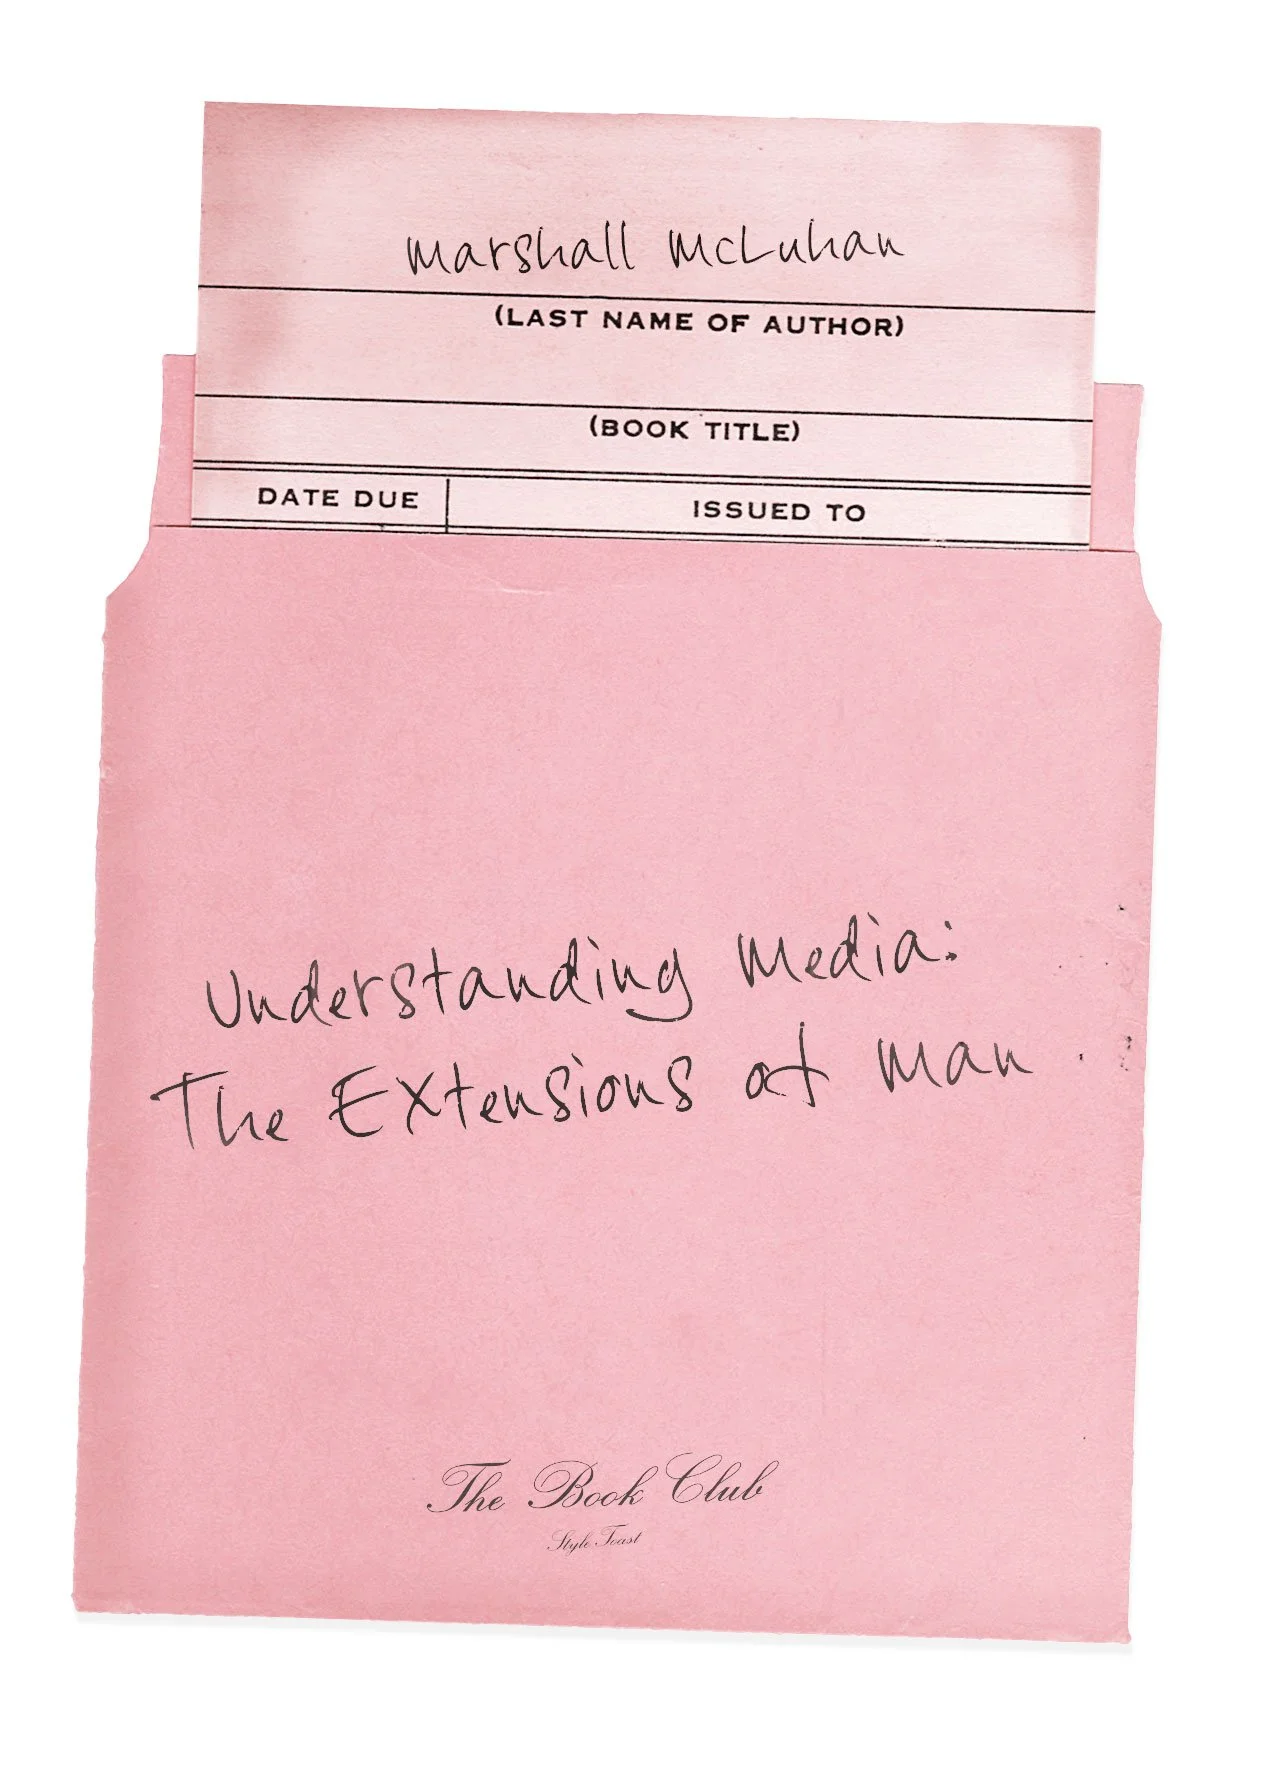 Marshall McLuhan
(LAST NAME OF AUTHOR)
(BOOK TITLE)
DATE DUE ISSUED TO
Understanding Media:
The Extensions of Man
The Book Club
Style Toast